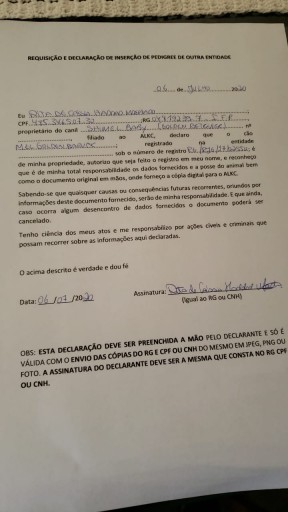 REQUISIÇÃO E DECLARAÇÃO DE INSERÇÃO DE PEDIGREE DE OUTRA ENTIDADE
06 de Julho 2020
Eu
CPF RG nº
proprietário do canil filiado ao ALKC, declaro que o cão
registrado na entidade
sob o número de registro
de minha propriedade, autorizo que seja feito o registro em meu nome, e reconheço
que é de minha total responsabilidade os dados fornecidos e a posse do animal bem
como o documento original em mãos, onde forneço a cópia digital para o ALKC.
Sabendo-se que quaisquer causas ou consequências futuras recorrentes, oriundos por
informações deste documento fornecido, serão de minha responsabilidade. E que ainda,
caso ocorra algum desencontro de dados fornecidos o documento poderá ser
cancelado.
Tenho ciência dos meus atos e me responsabilizo por ações cíveis e criminais que
possam recorrer sobre as informações aqui declaradas.
O acima descrito é verdade e dou fé
Data: 06 /07 /2020 Assinatura:
(Igual ao RG ou CNH)
OBS: ESTA DECLARAÇÃO DEVE SER PREENCHIDA A MÃO PELO DECLARANTE E SÓ É
VÁLIDA COM O ENVIO DAS CÓPIAS DO RG E CPF OU CNH DO MESMO EM JPEG, PNG OU
FOTO. A ASSINATURA DO DECLARANTE DEVE SER A MESMA QUE CONSTA NO RG CPF
OU CNH.